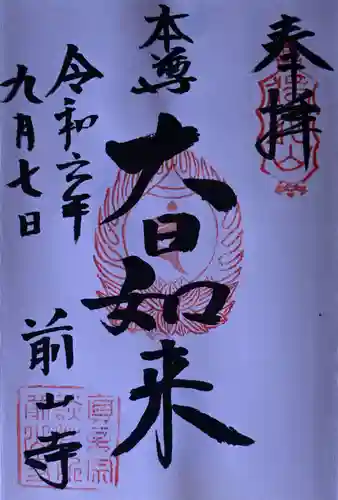 奉拝
本尊
大日如来
令和六年
九月七日
前山寺